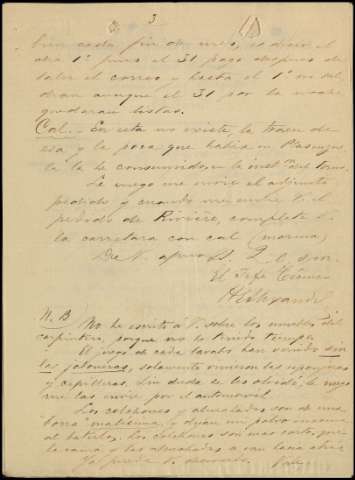 3
bien cada fin de mes, es decir el
dia 1º pues el 31 pago despues de
salir el correo y hasta el 1º no sal-
dran aunque el 31 por la noche
quedaran listas.
Cal.- En esta no existe, la traen de
esa y la poca que habia en Pasages
la he consumido en la inst. del torno.
Le ruego me envie el adjunto
pedido y cuando me envie V. el
pedido de Rivière, complete V.
la carretera con cal (morena)
De V. afmo. S. S.
El Jefe Técnico
N.B. No he escrito á V. sobre los muebles del
carpintero, porque no he tenido tiempo.
El juego de cada lavabo han venido sin
las jaboneras, solamente vinieron las esponjeras
y cepilleras. Sin duda se les olvidó, le ruego
me las envie por el automovil.
Los colchones y almohadas son de una
"borra" malisima, y dejan un polvo inmenso
al batirlos, los colchones son mas cortos que
la cama y las almohadas